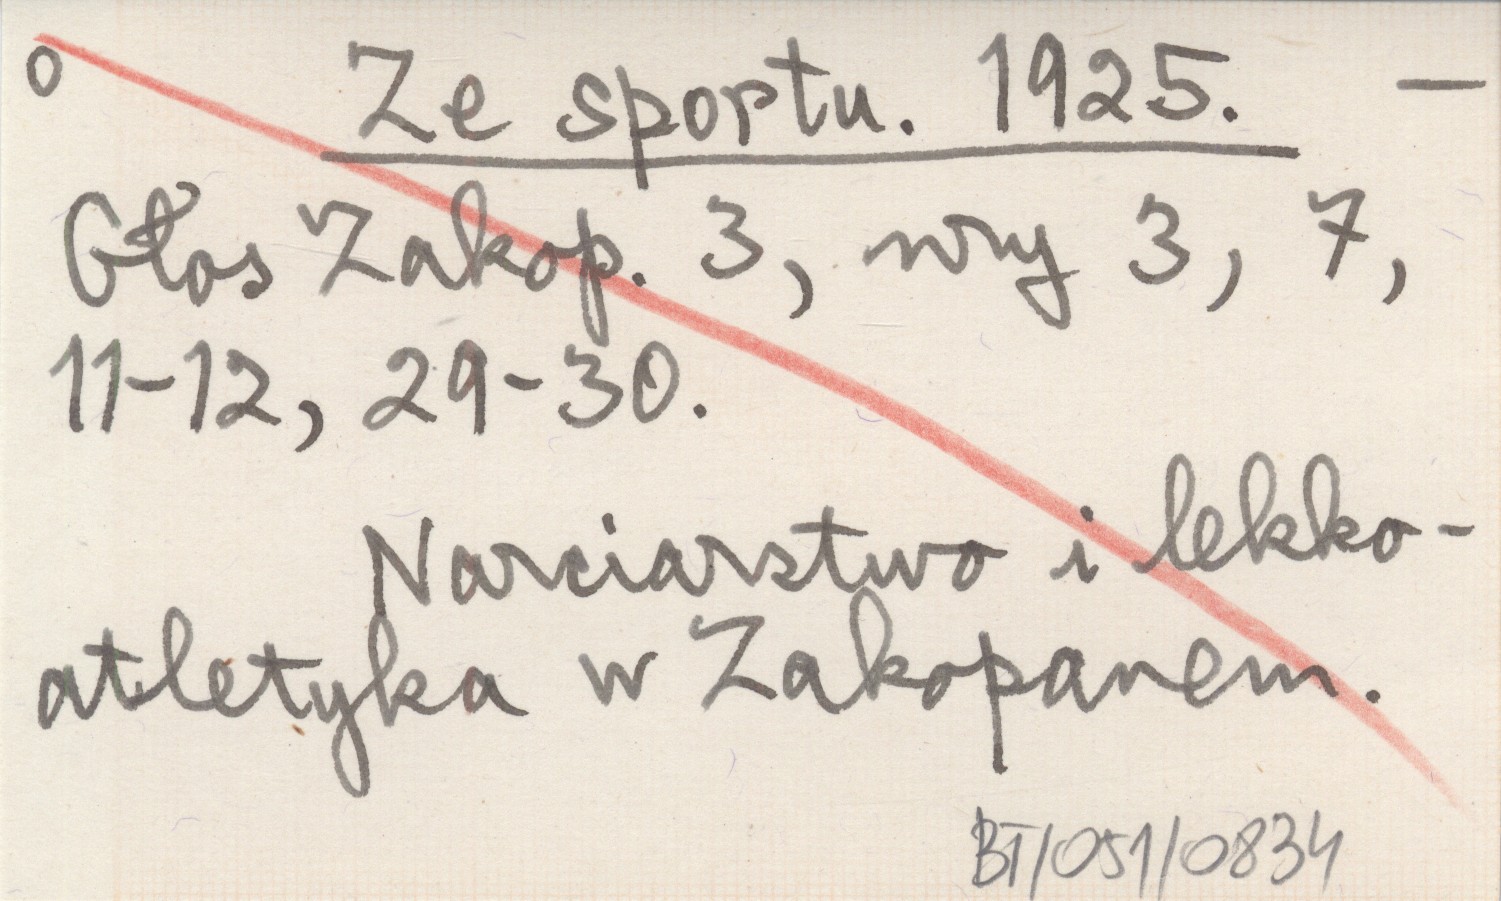 o Ze sportu. 1925. —
Głos Zakop. 3, nry 3, 7,
11-12, 29-30.
Narciarstwo i lekko-
atletyka w Zakopanem.
BT/051/0834